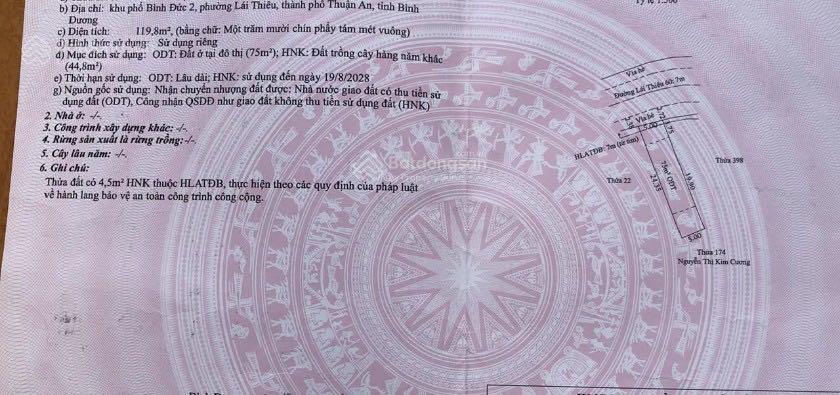 b) Địa chỉ: khu phố Bình Đức 2, phường Lái Thiêu, thành phố Thuận An, tỉnh Bình
Dương
c) Diện tích: 119,8m², (bằng chữ: Một trăm mười chín phẩy tám mét vuông)
d) Hình thức sử dụng: Sử dụng riêng
đ) Mục đích sử dụng: ODT: Đất ở tại đô thị (75m²); HNK: Đất trồng cây hàng năm khác
(44,8m²)
e) Thời hạn sử dụng: ODT: Lâu dài; HNK: sử dụng đến ngày 19/8/2028
g) Nguồn gốc sử dụng: Nhận chuyển nhượng đất được: Nhà nước giao đất có thu tiền sử
dụng đất (ODT), Công nhận QSDĐ như giao đất không thu tiền sử dụng đất (HNK)
2. Nhà ở: -/-
3. Công trình xây dựng khác: -/-.
4. Rừng sản xuất là rừng trồng: -/-.
5. Cây lâu năm: -/-
6. Ghi chú:
Thửa đất có 4,5m² HNK thuộc HLATĐB, thực hiện theo các quy định của pháp luật
về hành lang bảo vệ an toàn công trình công cộng.
Vỉa hè
Đường Lái Thiêu 60: 7m
Vỉa hè
5.00
HLATĐB: 7m (từ tim)
75m² ODT
24.35
19.90
Thửa 398
Thửa 22
5.00
Thửa 174
Nguyễn Thị Kim Cương
Batdongsan